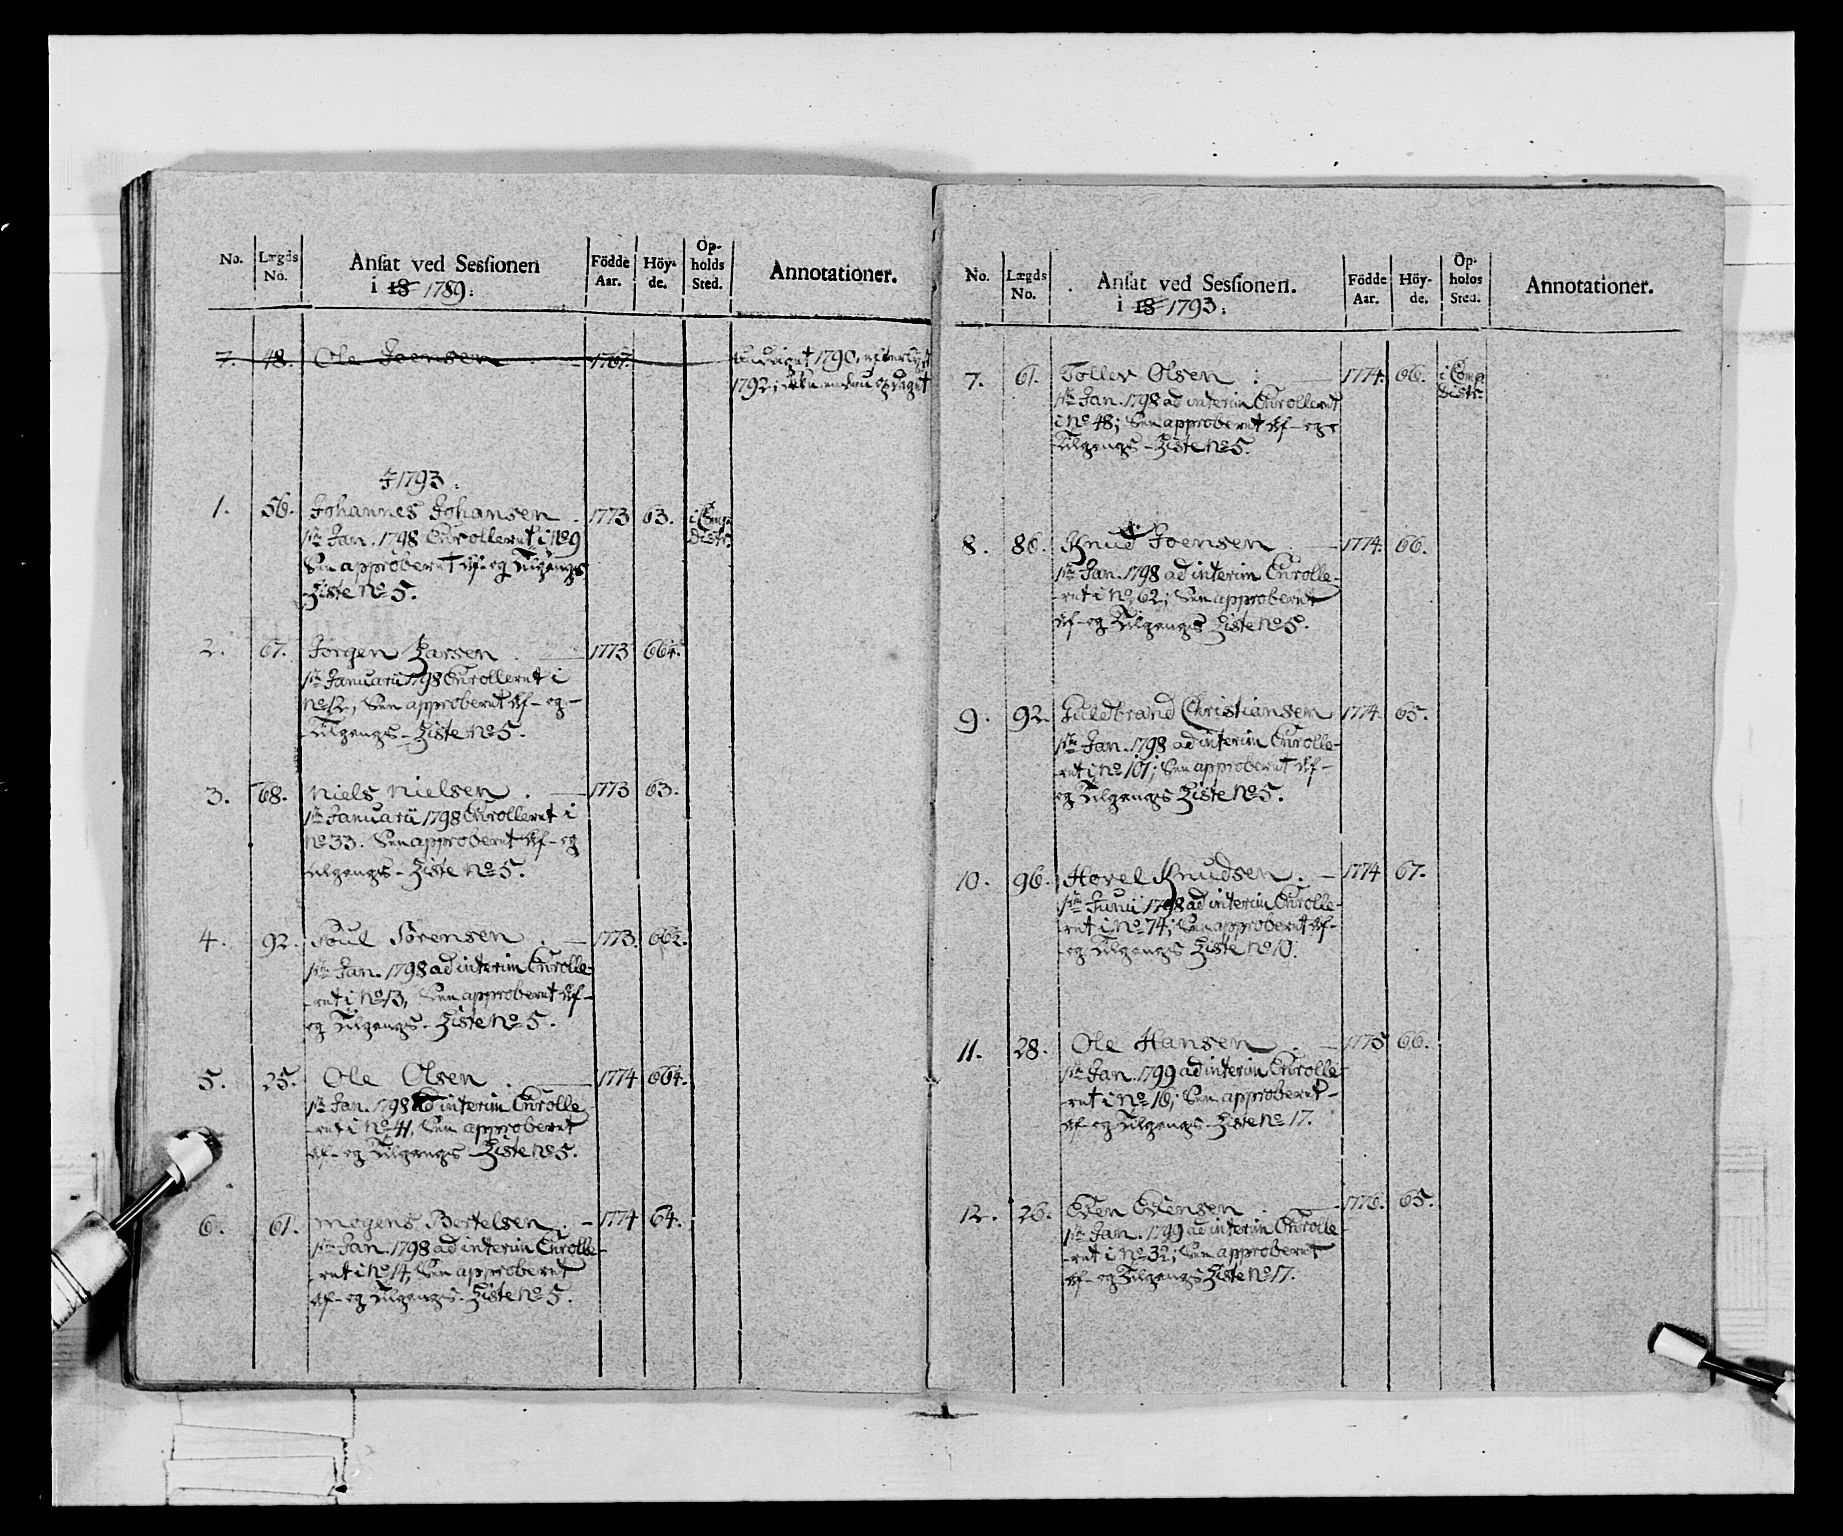 No. Lægds No. Ansat ved Sessionen i 18 1789: Födde Aar. Höyde. Opholds Sted. Annotationer.
7. 48. Ole Joensen . 1767. 1790, efterlyst
1792;
I 1793:
1. 56. Johannes Johansen . 1773 63. i Comp:
1ste Jan. 1798 Enrolleret i No 9 Distr:
See approberet Af- og Tilgangs
Liste No 5.
2. 67. Jørgen Larsen . 1773 66¼.
1ste Januarii 1798 Enrolleret i
No 12, See approberet Af- og-
Tilgangs- Liste No 5.
3. 68. Niels Nielsen . 1773 63.
1ste Januarii 1798 Enrolleret i
No 33. See approberet Af- og
Tilgangs- Liste No 5.
4. 92. Poul Sörensen . 1773. 66½.
1ste Jan. 1798 ad interim Enrolle-
-ret i No 13, See approberet Af-
og Tilgangs- Liste No 5.
5. 25. Ole Olsen . 1774 66¼.
1ste Jan. 1798 ad interim Enrolle
-ret i No 41, See approberet
Af- og Tilgangs- Liste No 5.
6. 61. Mogens Bertelsen . 1774 64.
1ste Jan. 1798 ad interim Enrolle-
-ret i No 14, See approberet
Af- og Tilgangs- Liste No 5.
No. Lægds No. Ansat ved Sessionen. i 18 1793: Födde Aar. Höyde. Opholds Sted. Annotationer.
7. 61. Tollev Olsen . 1774. 66. i Comp:
1ste Jan. 1798 ad interim Enrolleret Distr:
i No 48; See approberet Af- og-
Tilgangs- Liste No 5.
8. 86. Knud Joensen . 1774. 66.
1ste Jan. 1798 ad interim Enrolle-
-ret i No 62; See approberet
Af- og Tilgangs Liste No 5.
9. 92. Guldbrand Christiansen 1774. 65.
1ste Jan. 1798 ad interim Enrolle-
-ret i No 101; See approberet Af-
og Tilgangs Liste No 5.
10. 96. Hovel Knudsen . 1774 67.
1ste Junii 1798 ad interim Enrolle-
-ret i No 74; See approberet Af-
-og Tilgangs Liste No 10.
11. 28. Ole Hansen . 1775 66.
1ste Jan. 1799 ad interim Enrolle-
-ret i No 16; See approberet-
Af- og Tilgangs- Liste No 17.
12. 26. Even Evensen . 1776. 65.
1ste Jan. 1799 ad interim Enrolle-
-ret i No 32; See approberet
Af- og Tilgangs Liste No 17.